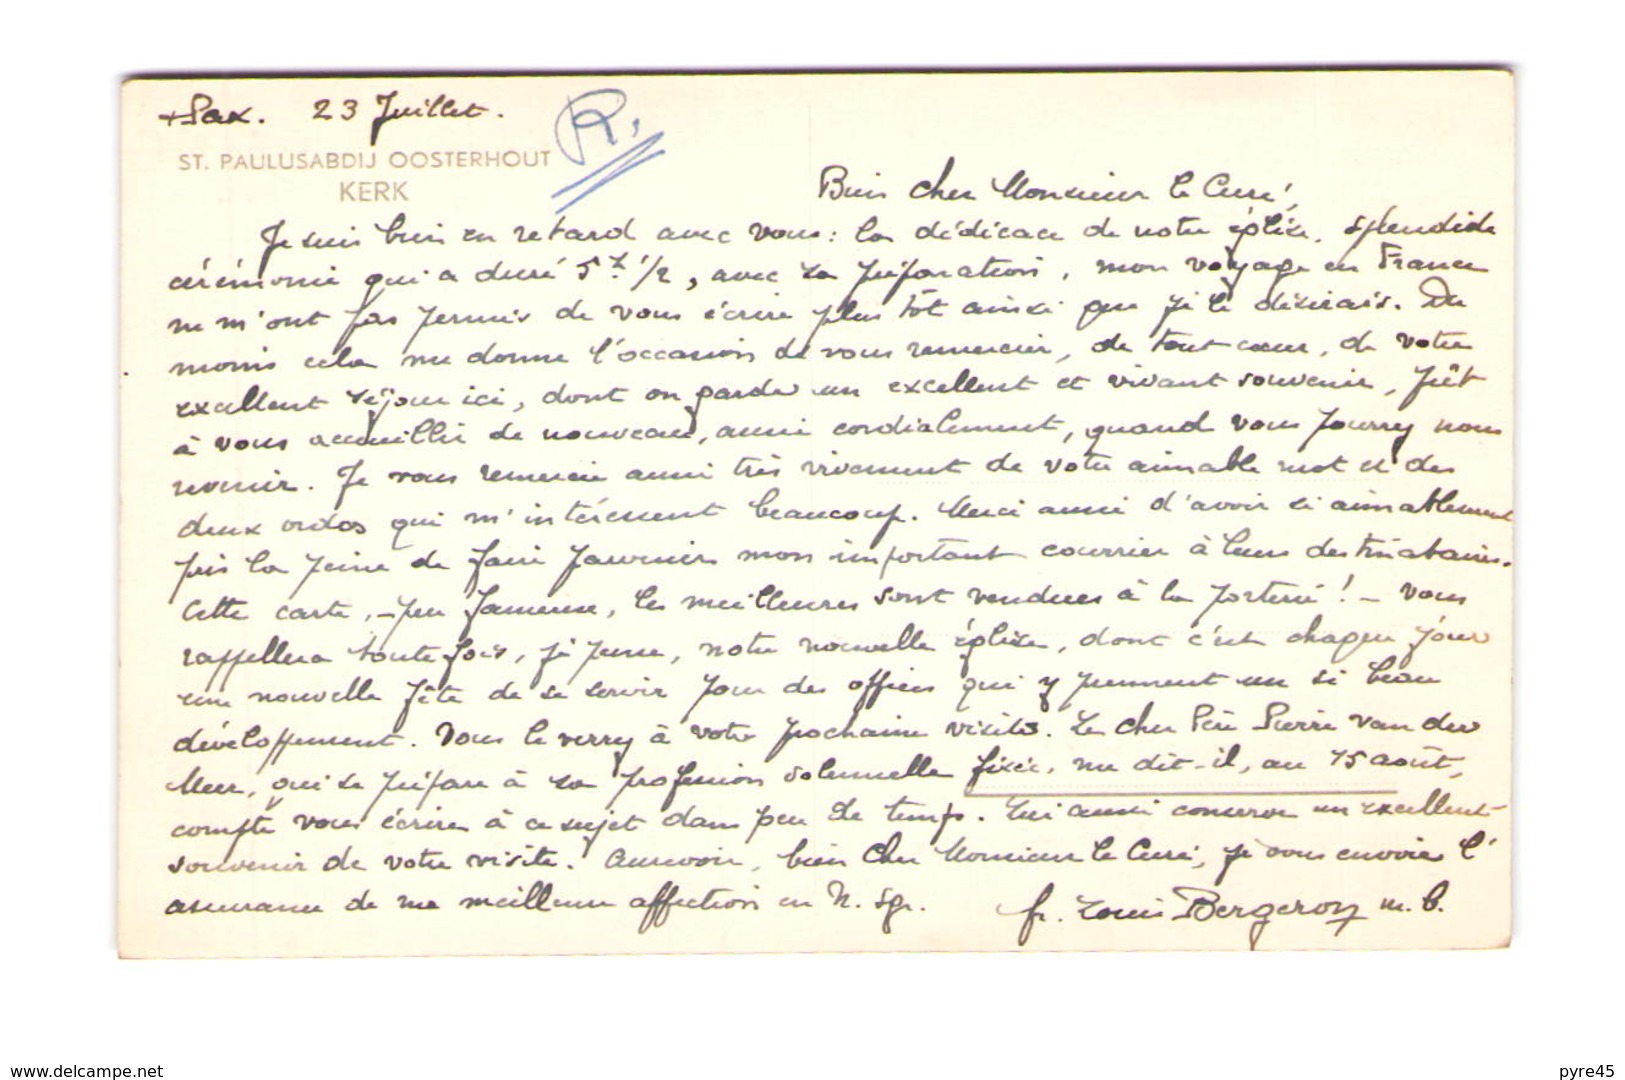 + Pax. 23 Juillet.
R.
ST. PAULUSABDIJ OOSTERHOUT
KERK
Bien cher Monsieur le Curé,
Je suis bien en retard avec vous : la dédicace de notre église, splendide
cérémonie qui a duré 5 h. 1/2, avec sa préparation, mon voyage en France
ne m'ont pas permis de vous écrire plus tôt ainsi que je le désirais. Du
moins cela me donne l'occasion de vous remercier, de tout cœur, de votre
excellent séjour ici, dont on garde un excellent et vivant souvenir, prêt
à vous accueillir de nouveau, aussi cordialement, quand vous pourrez nous
revenir. Je vous remercie aussi très vivement de votre aimable mot et des
deux ordos qui m'intéressent beaucoup. Merci aussi d'avoir si aimablement
pris la peine de faire parvenir mon important courrier à leurs destinataires.
Cette carte, - peu fameuse, les meilleures sont vendues à la porterie ! - vous
rappellera toutefois, je pense, notre nouvelle église, dont c'est chaque jour
une nouvelle fête de se servir pour des offices qui y prennent un si beau
développement. Vous le verrez à votre prochaine visite. Le cher Père Pierre van der
Meer, qui se prépare à sa profession solennelle fixée, me dit-il, au 15 août,
compte vous écrire à ce sujet dans peu de temps. Lui aussi conserve un excellent
souvenir de votre visite. Au revoir, bien cher Monsieur le Curé, je vous envoie l'
assurance de ma meilleure affection en N. Sgr.
fr. Louis Bergeron m. b.
www.delcampe.net
pyre45